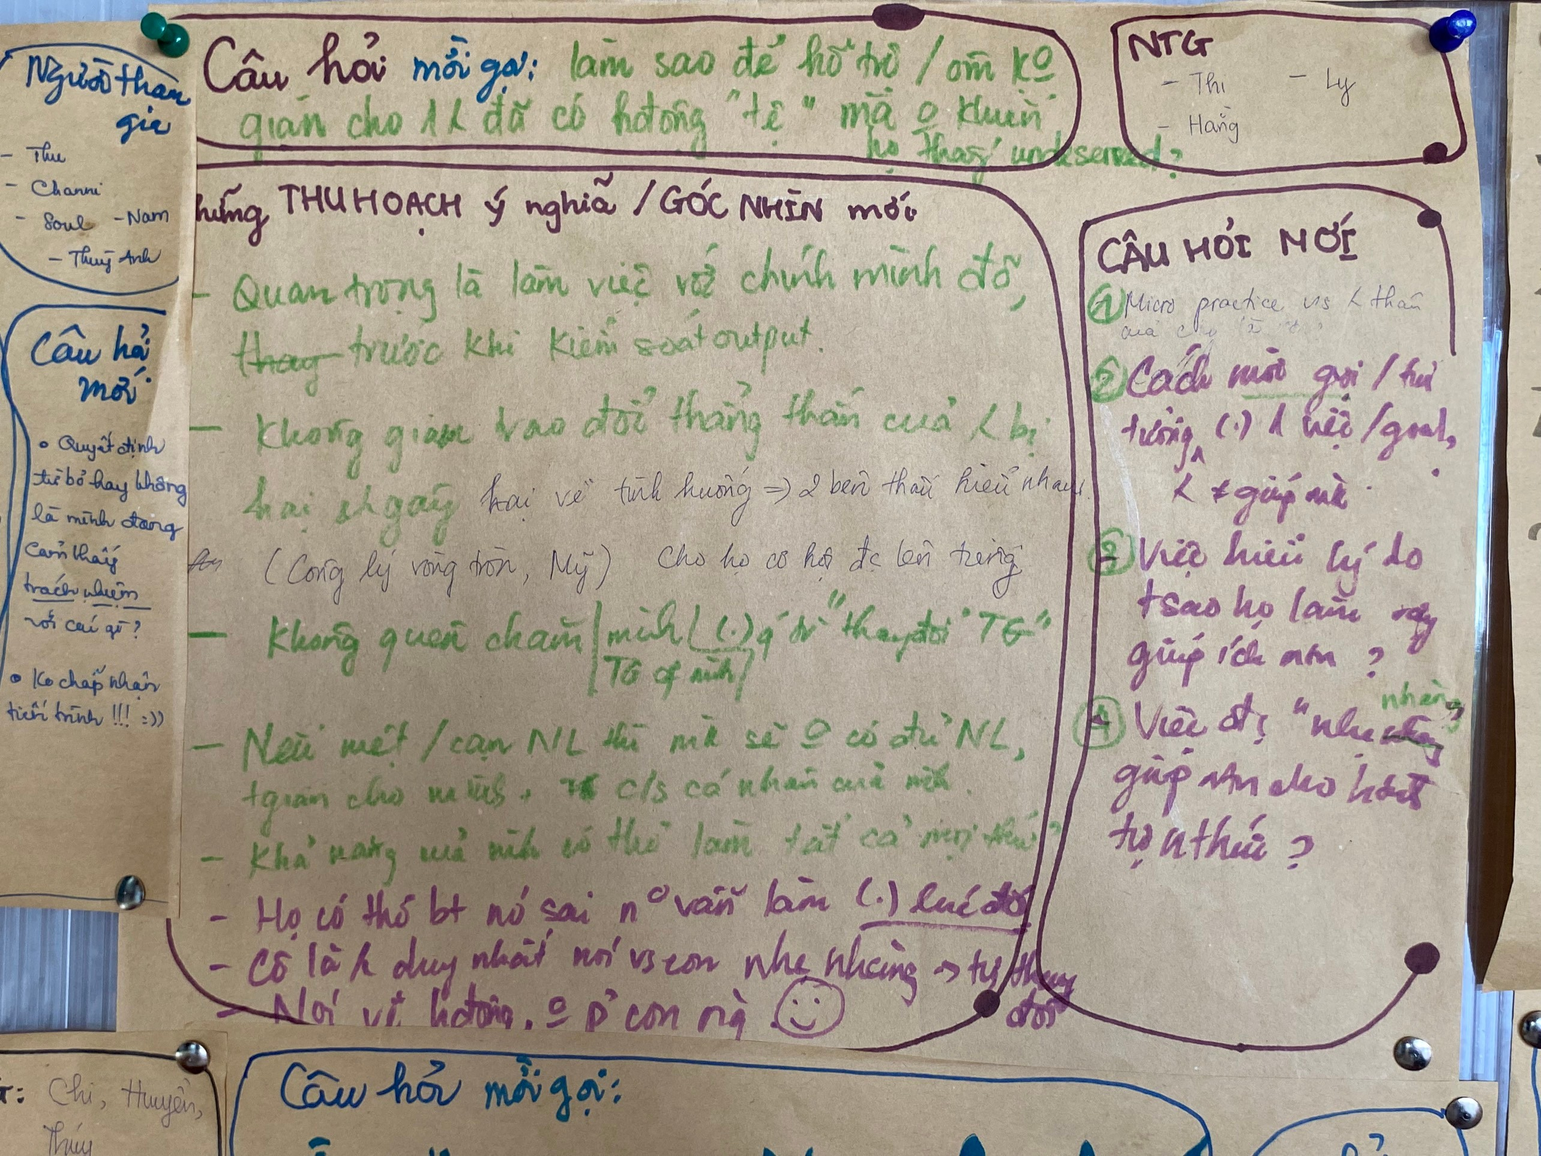 Người tham
gia
- Thu
- Channi
- Soul - Nam
- Thuỳ Anh
Câu hỏi
mới
• Quyết định
từ bỏ hay không
là mình đang
cảm thấy
trách nhiệm
với cái gì?
• Ko chấp nhận
tiến trình !!! :))
Câu hỏi mời gọi: làm sao để hỗ trợ / ôm ko
gian cho 1 k đã có hđộng "tệ" mà o khiến
họ thấy undeserved?
NTG
- Thi - Ly
- Hằng
những THU HOẠCH ý nghĩa / GÓC NHÌN mới
- Quan trọng là làm việc với chính mình đó,
thay trước khi kiểm soát output.
- Không gian trao đổi thẳng thắn của k bị
hại & gây hại về tình huống => 2 bên thấu hiểu nhau
(Công lý vòng tròn, Mỹ) cho họ cơ hội đc lên tiếng
- Không quên chăm mình (.) q tr "thay đổi TG"
TG of mình
- Nếu mệt / cạn NL thì mk sẽ o có đủ NL,
tgian cho mình + c/s cá nhân của mk.
- Khả năng mà mình có thể làm tất cả mọi thứ?
- Họ có thể bt nó sai n° vẫn làm (.) lúc đó
- Cô là k duy nhất nói vs con nhẹ nhàng -> tự thay
đổi
- Nói về hđộng. o p' con ng
CÂU HỎI NỐI
1 Micro practice vs k thân
2 Cách mời gọi / tin
tưởng (.) 1 việc / goal,
k ≠ giúp mk
3 Việc hiểu lý do
tsao họ làm vậy
giúp ích ntn?
4 Việc đc "nhẹ nhàng"
giúp ntn cho hành
tự nthức?
Chi, Huyền,
Thúy
Câu hỏi mời gọi: